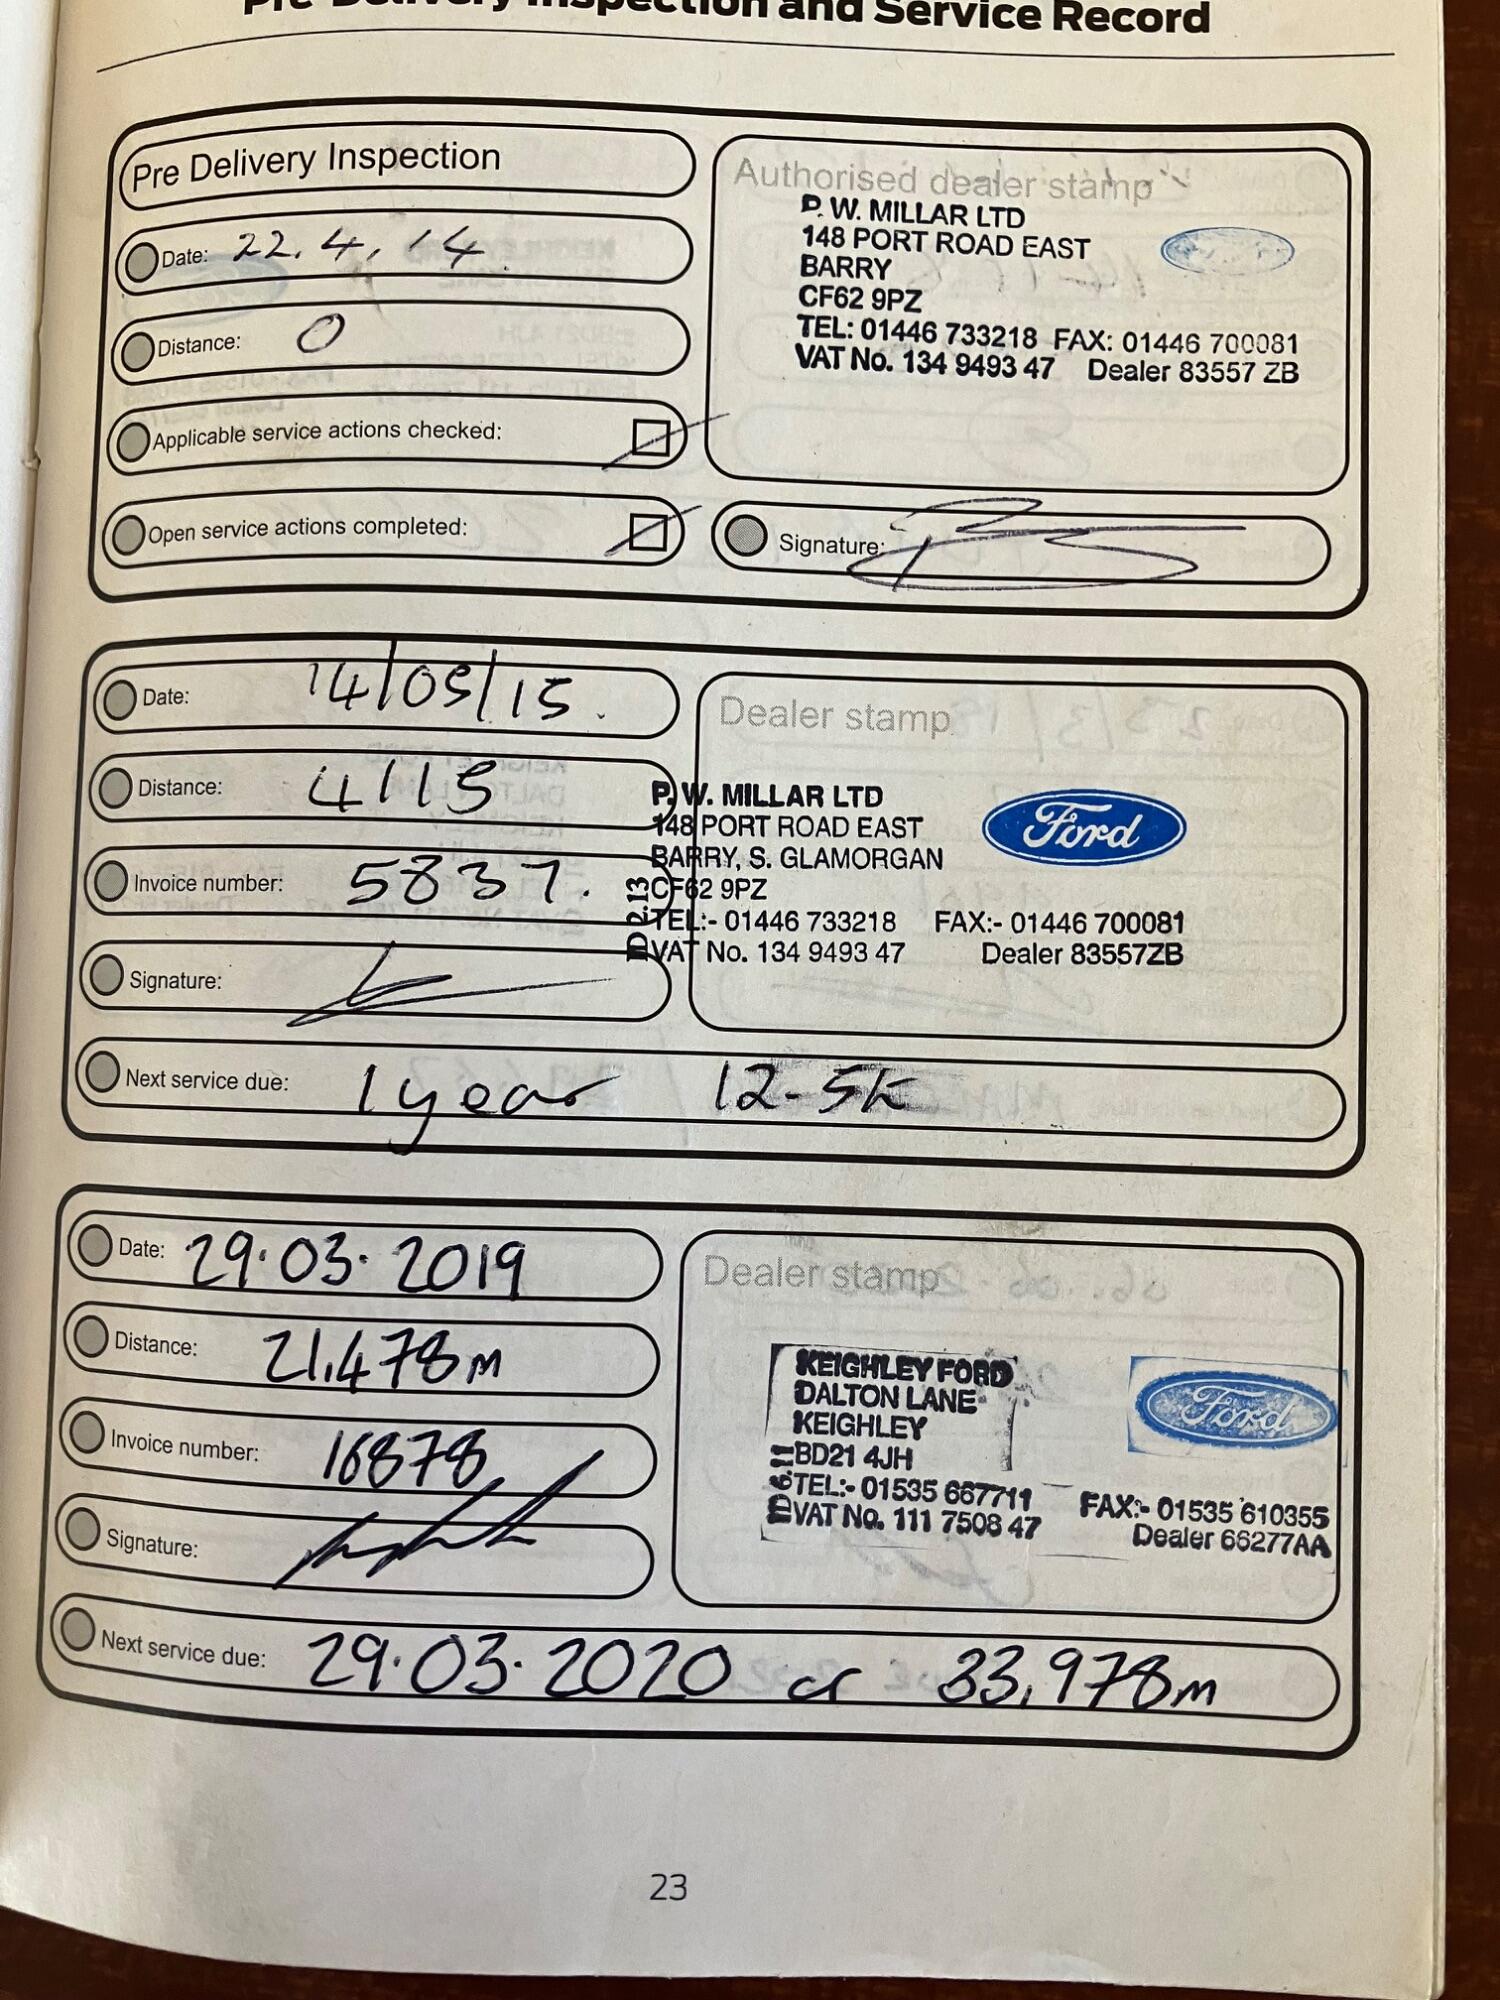 Pre-Delivery Inspection and Service Record
Pre Delivery Inspection
Date: 22.4.14.
Distance: 0
Applicable service actions checked:
Open service actions completed:
Authorised dealer stamp
P. W. MILLAR LTD
148 PORT ROAD EAST
BARRY
CF62 9PZ
TEL: 01446 733218 FAX: 01446 700081
VAT No. 134 9493 47 Dealer 83557 ZB
Signature:
Date: 14/05/15.
Distance: 4115
Invoice number: 5837.
Signature:
Dealer stamp
P. W. MILLAR LTD
148 PORT ROAD EAST
BARRY, S. GLAMORGAN
CF62 9PZ
TEL:- 01446 733218 FAX:- 01446 700081
VAT No. 134 9493 47 Dealer 83557ZB
Ford
ID 2.13
Next service due: 1 year 12-5K
Date: 29.03.2019
Distance: 21,478m
Invoice number: 16878
Signature:
Dealer stamp
KEIGHLEY FORD
DALTON LANE
KEIGHLEY
BD21 4JH
TEL:- 01535 667711 FAX:- 01535 610355
VAT No. 111 7508 47 Dealer 66277AA
Ford
Next service due: 29.03.2020 or 33,978m
23